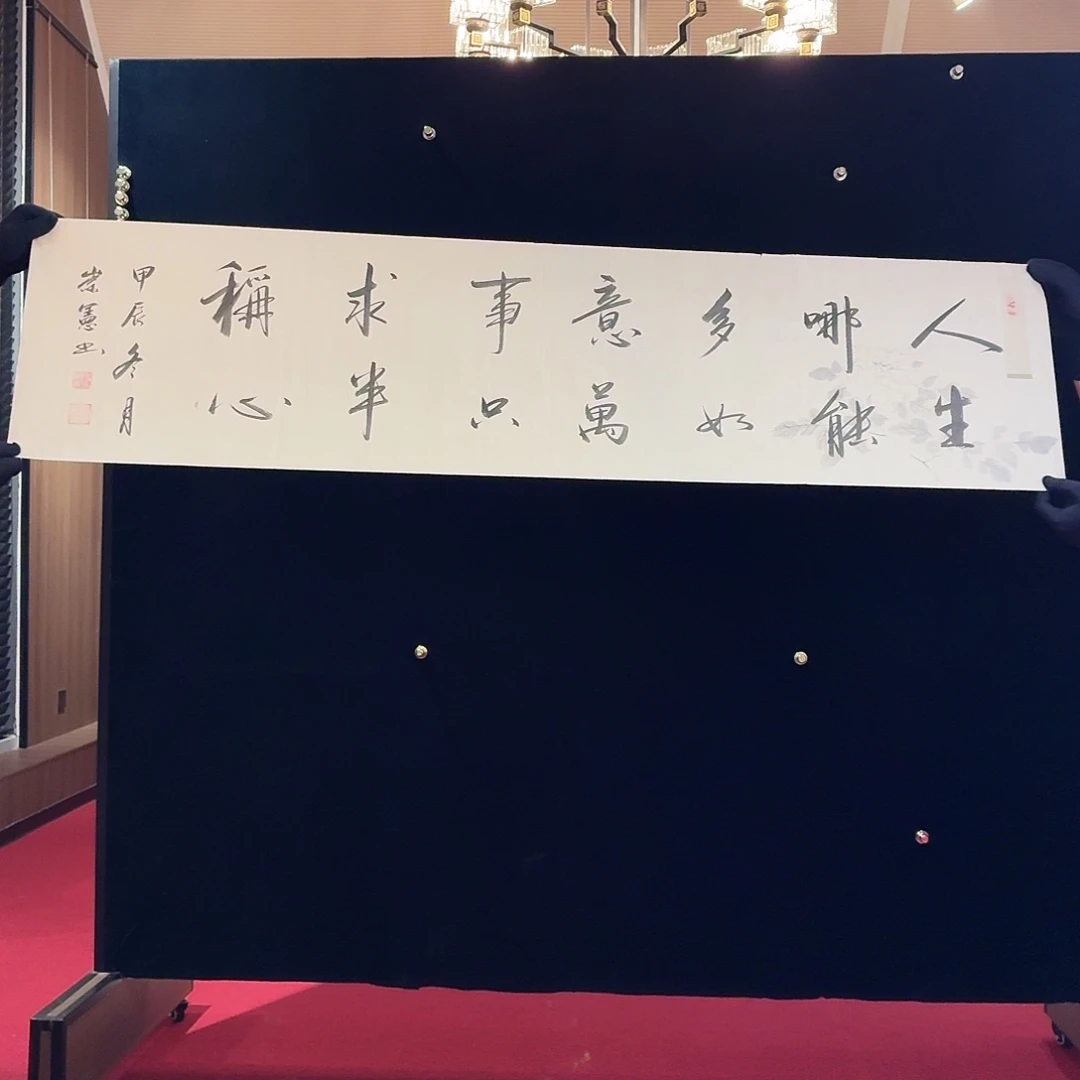 人生
哪能
多如
意萬
事只
求半
稱心
甲辰冬月
崇憲書